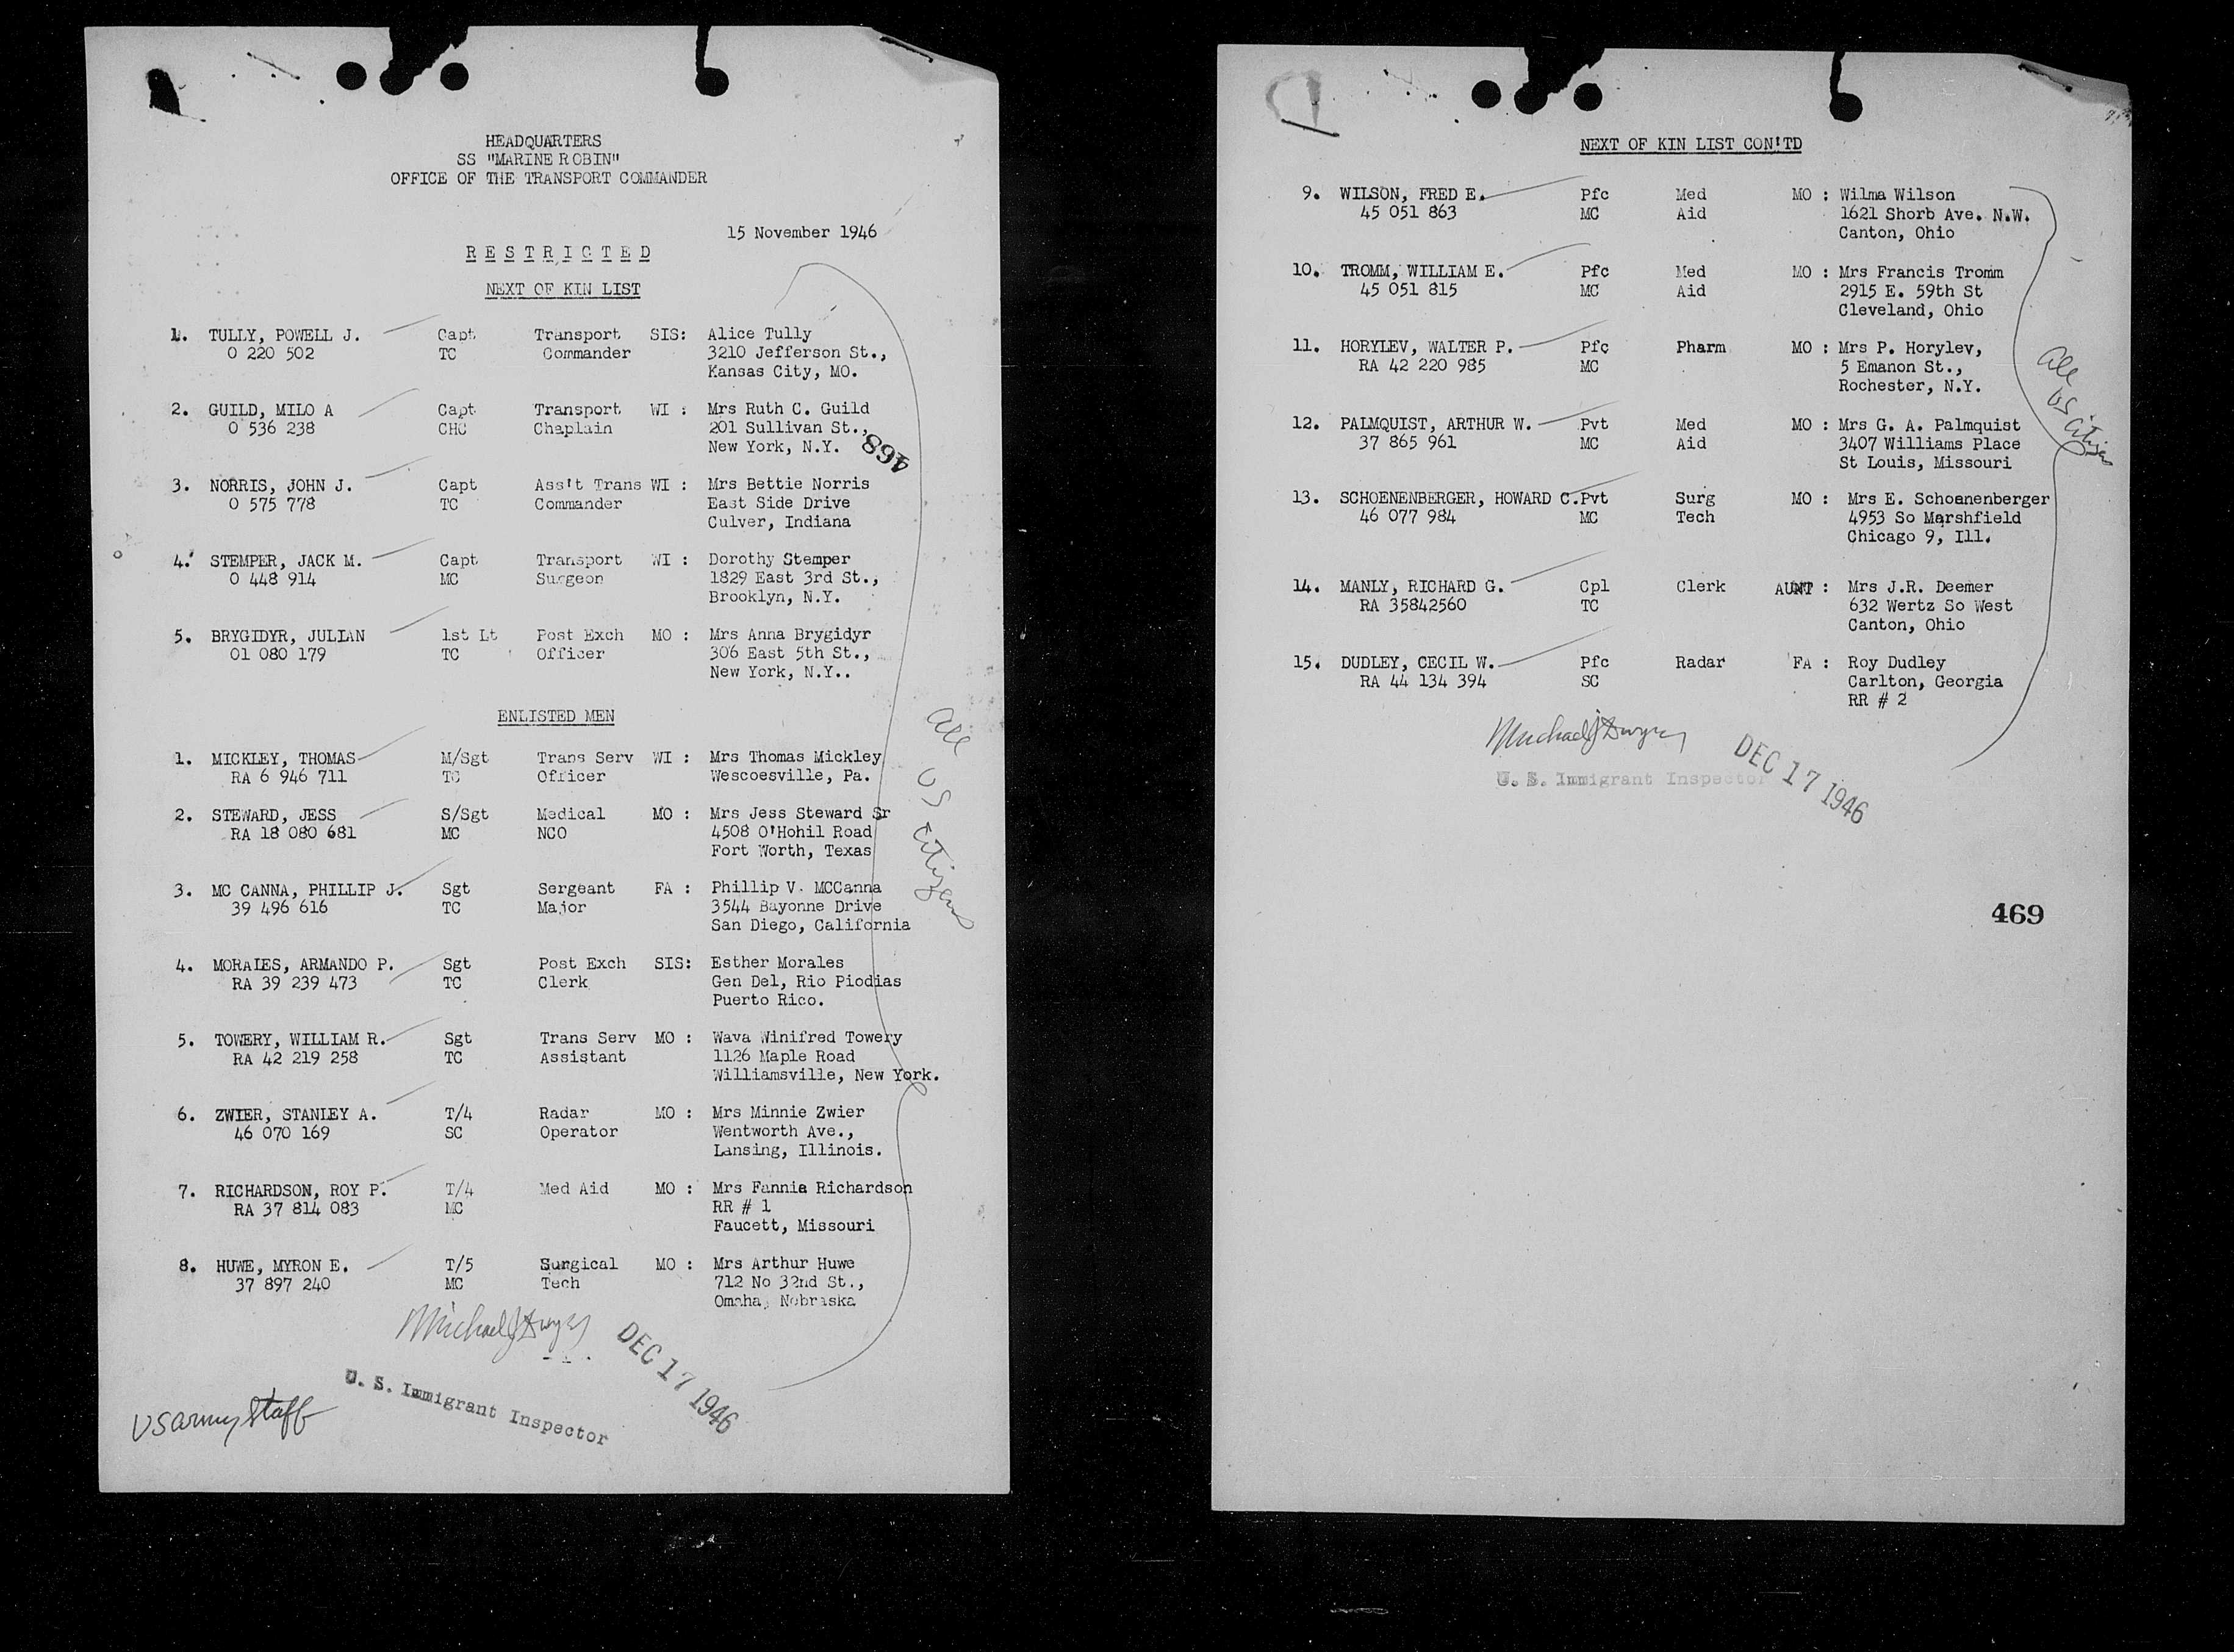 HEADQUARTERS
SS "MARINE ROBIN"
OFFICE OF THE TRANSPORT COMMANDER
15 November 1946
R E S T R I C T E D
NEXT OF KIN LIST
1. TULLY, POWELL J. Capt Transport SIS: Alice Tully
O 220 502 TC Commander 3210 Jefferson St.,
Kansas City, MO.
2. GUILD, MILO A Capt Transport WI : Mrs Ruth C. Guild
O 536 238 CHC Chaplain 201 Sullivan St.,
New York, N.Y.
468
3. NORRIS, JOHN J. Capt Ass't Trans WI : Mrs Bettie Norris
O 575 778 TC Commander East Side Drive
Culver, Indiana
4. STEMPER, JACK M. Capt Transport WI : Dorothy Stemper
O 448 914 MC Surgeon 1829 East 3rd St.,
Brooklyn, N.Y.
5. BRYGIDYR, JULIAN 1st Lt Post Exch MO : Mrs Anna Brygidyr
O1 080 179 TC Officer 306 East 5th St.,
New York, N.Y..
ENLISTED MEN
All US Citizens
1. MICKLEY, THOMAS M/Sgt Trans Serv WI : Mrs Thomas Mickley
RA 6 946 711 TC Officer Wescoesville, Pa.
2. STEWARD, JESS S/Sgt Medical MO : Mrs Jess Steward Sr
RA 18 080 681 MC NCO 4508 O'Hohil Road
Fort Worth, Texas
3. MC CANNA, PHILLIP J. Sgt Sergeant FA : Phillip V. MCCanna
39 496 616 TC Major 3544 Bayonne Drive
San Diego, California
4. MORALES, ARMANDO P. Sgt Post Exch SIS: Esther Morales
RA 39 239 473 TC Clerk Gen Del, Rio Piodias
Puerto Rico.
5. TOWERY, WILLIAM R. Sgt Trans Serv MO : Wava Winifred Towery
RA 42 219 258 TC Assistant 1126 Maple Road
Williamsville, New York.
6. ZWIER, STANLEY A. T/4 Radar MO : Mrs Minnie Zwier
46 070 169 SC Operator Wentworth Ave.,
Lansing, Illinois.
7. RICHARDSON, ROY P. T/4 Med Aid MO : Mrs Fannie Richardson
RA 37 814 083 MC RR # 1
Faucett, Missouri
8. HUWE, MYRON E. T/5 Surgical MO : Mrs Arthur Huwe
37 897 240 MC Tech 712 No 32nd St.,
Omaha, Nebraska
Michael J Dwyer
DEC 17 1946
U. S. Immigrant Inspector
US Army Staff
NEXT OF KIN LIST CON'TD
9. WILSON, FRED E. Pfc Med MO : Wilma Wilson
45 051 863 MC Aid 1621 Shorb Ave. N.W.
Canton, Ohio
10. TROMM, WILLIAM E. Pfc Med MO : Mrs Francis Tromm
45 051 815 MC Aid 2915 E. 59th St
Cleveland, Ohio
11. HORYLEV, WALTER P. Pfc Pharm MO : Mrs P. Horylev,
RA 42 220 985 MC 5 Emanon St.,
Rochester, N.Y.
All US Citizen
12. PALMQUIST, ARTHUR W. Pvt Med MO : Mrs G. A. Palmquist
37 865 961 MC Aid 3407 Williams Place
St Louis, Missouri
13. SCHOENENBERGER, HOWARD C. Pvt Surg MO : Mrs E. Schoenenberger
46 077 984 MC Tech 4953 So Marshfield
Chicago 9, Ill.
14. MANLY, RICHARD G. Cpl Clerk AUNT : Mrs J.R. Deemer
RA 35842560 TC 632 Wertz So West
Canton, Ohio
15. DUDLEY, CECIL W. Pfc Radar FA : Roy Dudley
RA 44 134 394 SC Carlton, Georgia
RR # 2
Michael J Dwyer
DEC 17 1946
U. S. Immigrant Inspector
469